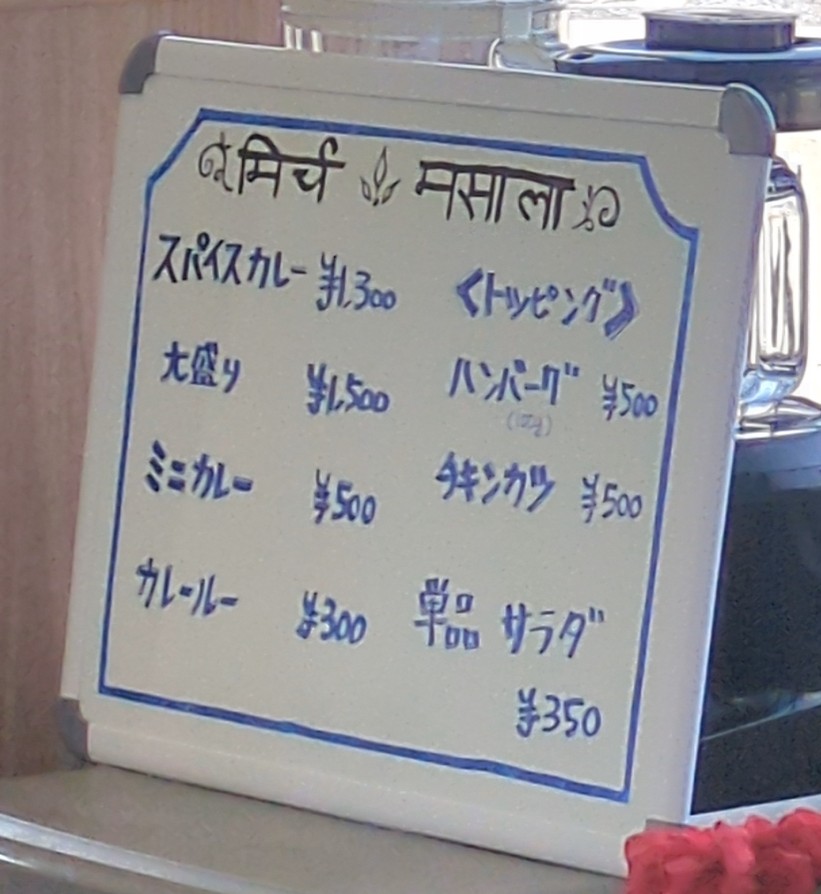 मिर्च मसाला
スパイスカレー ¥1,300
大盛り ¥1,500
ミニカレー ¥500
カレールー ¥300
《トッピング》
ハンバーグ ¥500
チキンカツ ¥500
単品 サラダ
¥350